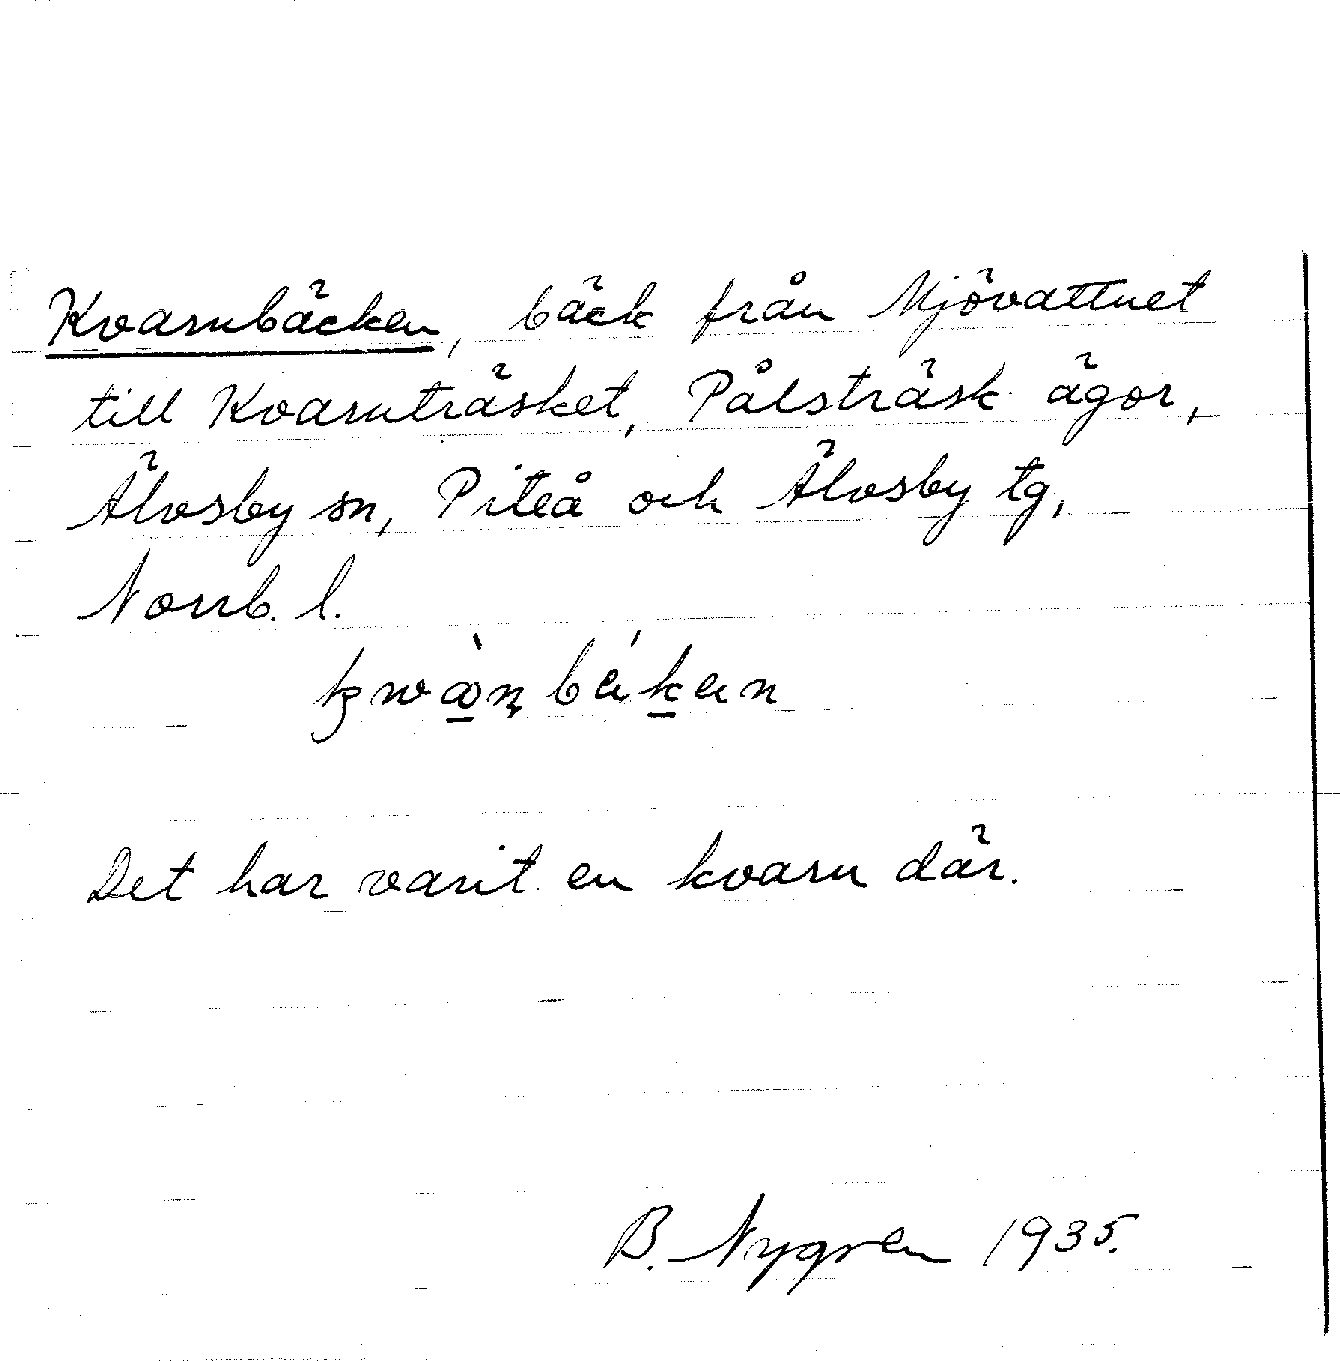 Kvarnbäcken, bäck från Mjövattnet
till Kvarnträsket, Pålsträsk ägor,
Älvsby sn, Piteå och Älvsby tg,
Norrb. l.
Det har varit en kvarn där.
B. Nygren 1935.